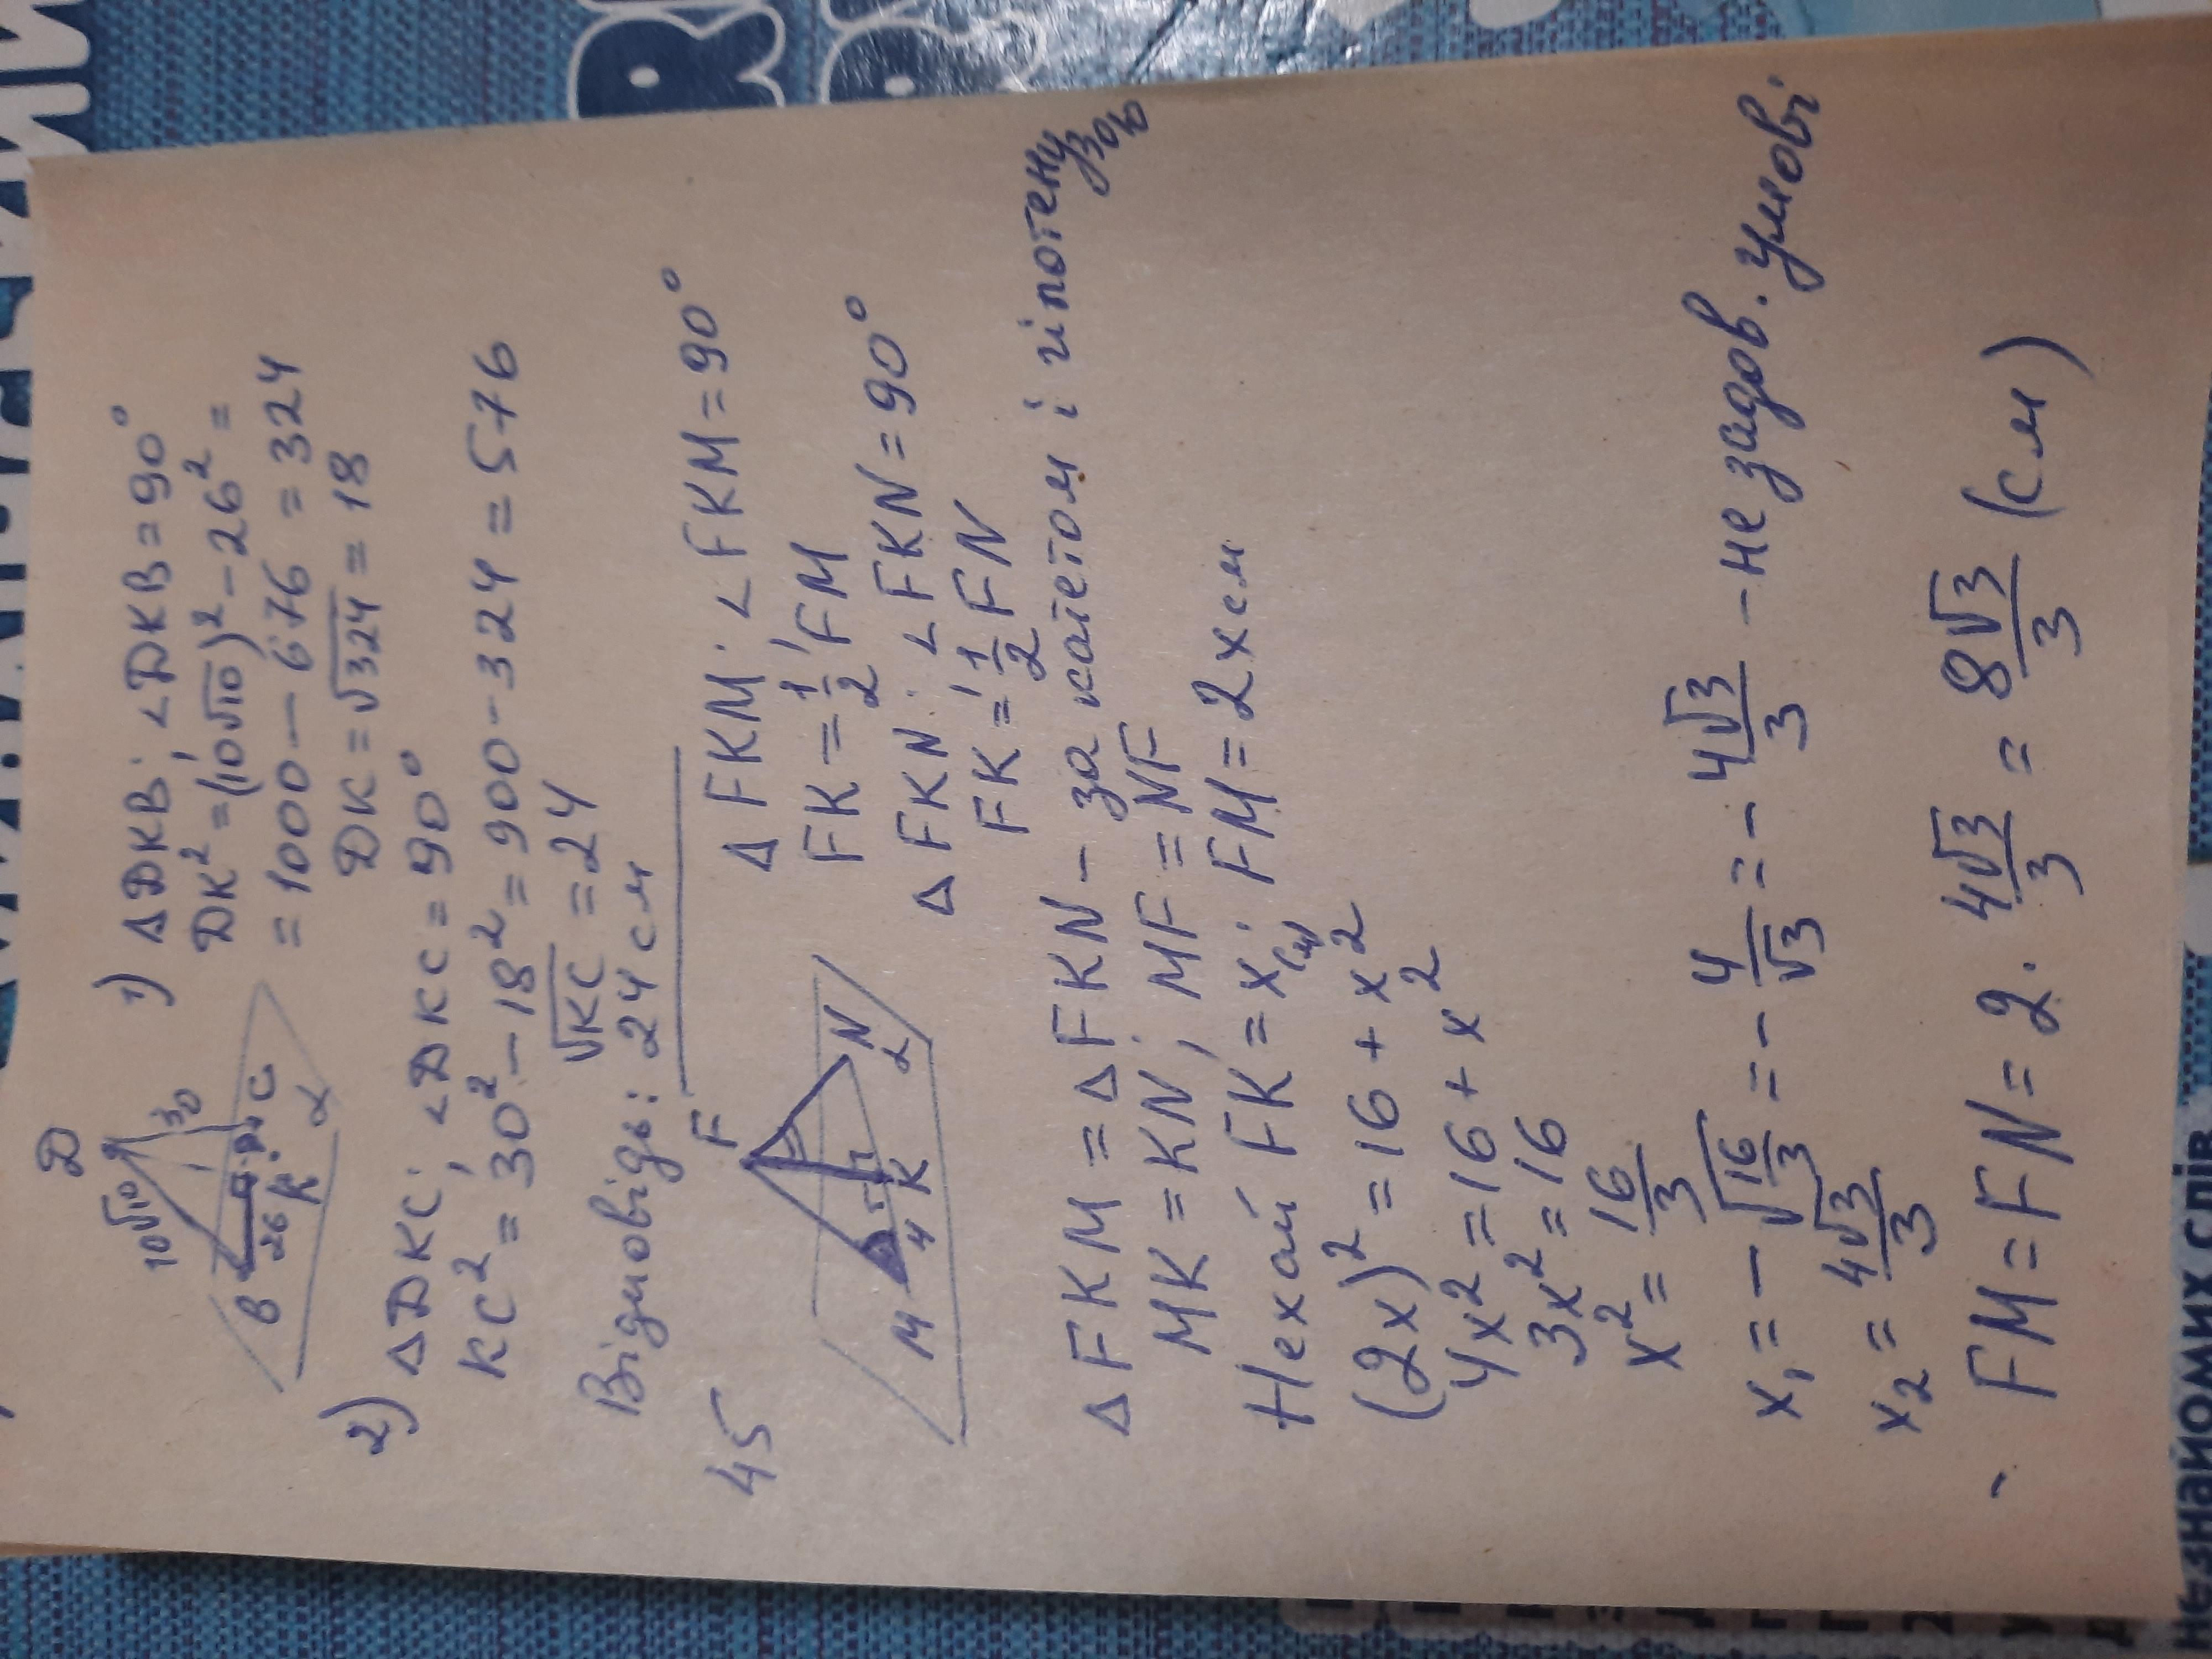 D
10√10
30
B
26
K
C
α
1) ΔDKB; ∠DKB=90°
DK²=(10√10)²-26²=
=1000-676=324
DK=√324=18
2) ΔDKC; ∠DKC=90°
KC²=30²-18²=900-324=576
√KC=24
Відповідь: 24 см
45
F
M
4
K
N
α
ΔFKM: ∠FKM=90°
FK=1/2 FM
ΔFKN: ∠FKN=90°
FK=1/2 FN
ΔFKM=ΔFKN – за катетом і гіпотенузою
MK=KN; MF=NF
Нехай FK=x см; FM=2x см
(2x)²=16+x²
4x²=16+x²
3x²=16
x²=16/3
x₁=-√16/3=-4/√3=-4√3/3 - не задов. умові
x₂=4√3/3
FM=FN=2·4√3/3=8√3/3 (см)
незнайомих слів